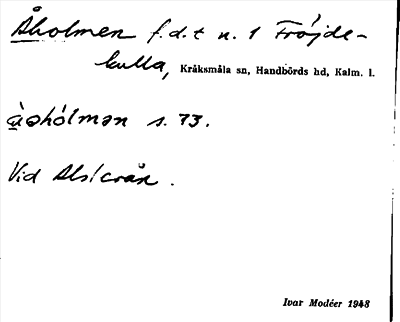 Åholmen f.d.t n. 1 Fröjde-
kulla, Kråksmåla sn, Handbörds hd, Kalm. l.
s. 73.
Vid Alsterån.
Ivar Modéer 1948